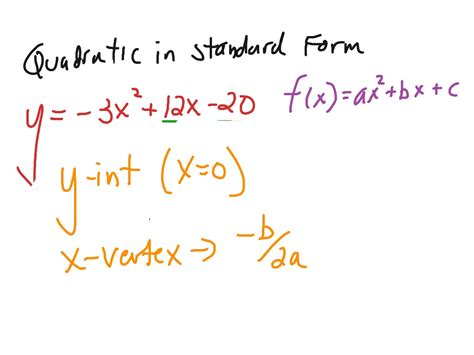 Quadratic in standard Form
y = -3x² + 12x - 20
f(x) = ax² + bx + c
y-int (x=0)
x-vertex → -b/2a